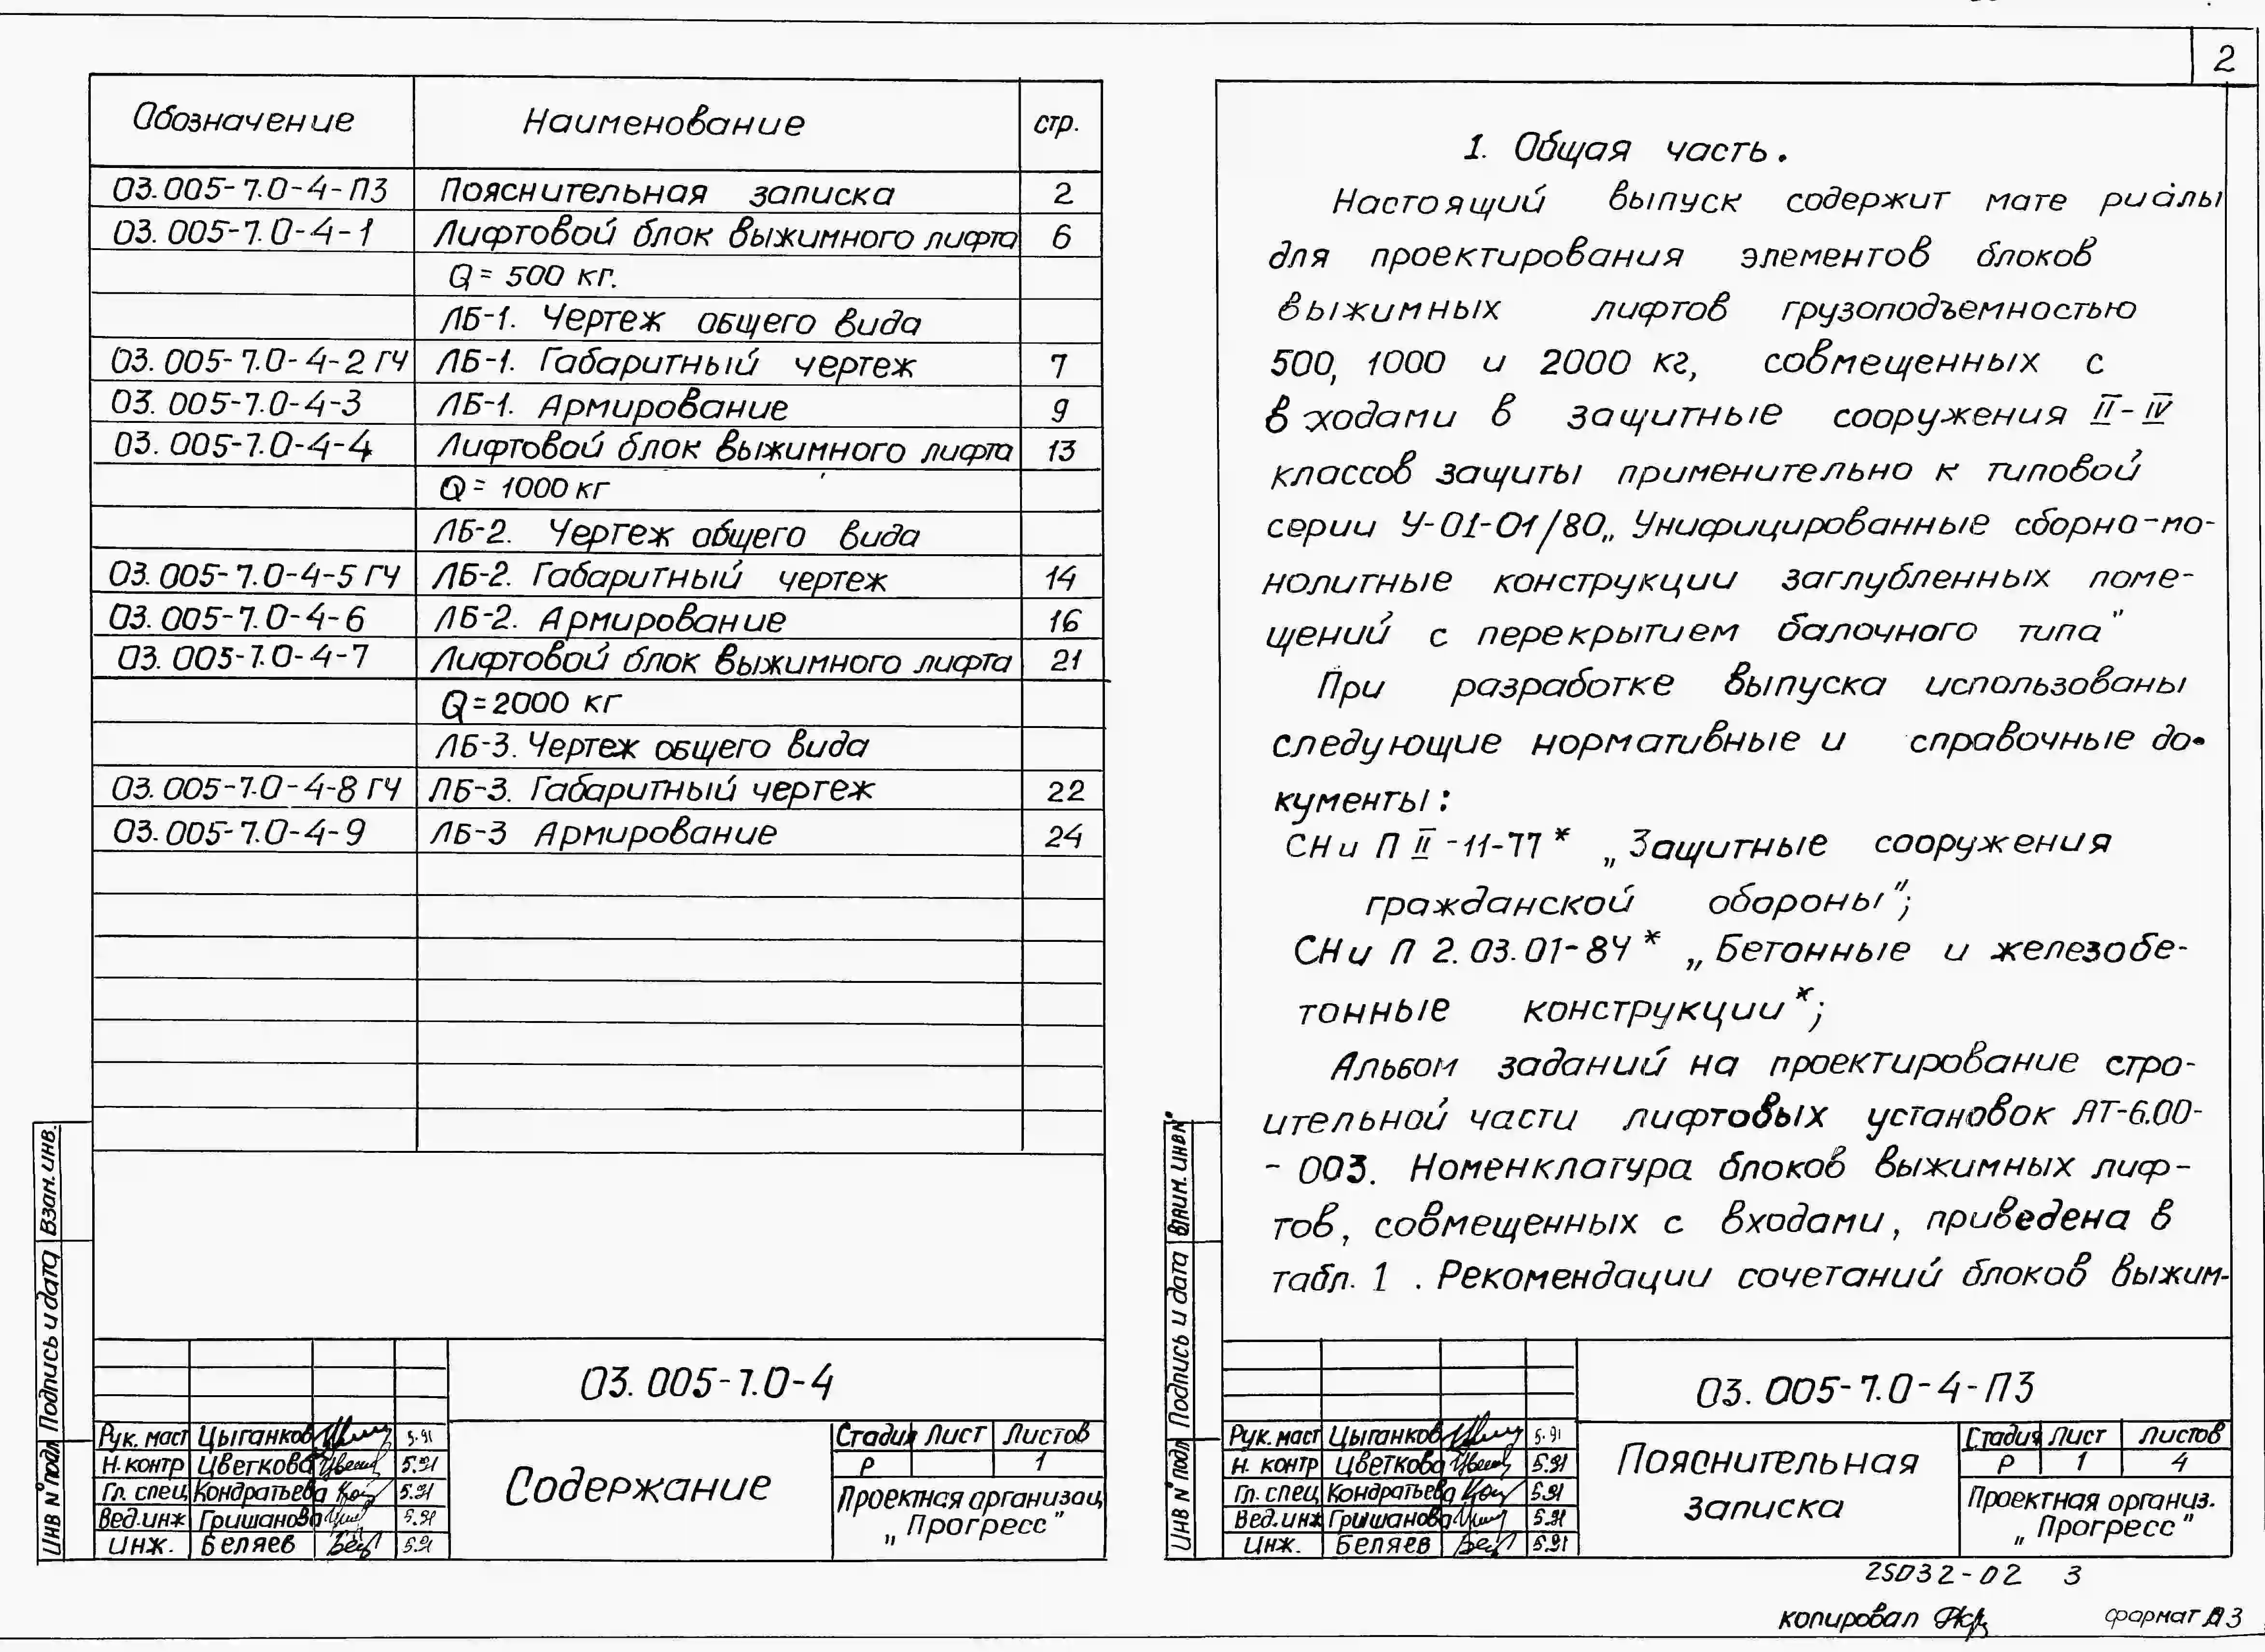 2
Обозначение Наименование стр.
03.005-7.0-4-ПЗ Пояснительная записка 2
03.005-7.0-4-1 Лифтовой блок выжимного лифта 6
Q= 500 кг.
ЛБ-1. Чертеж общего вида
03.005-7.0-4-2 ГЧ ЛБ-1. Габаритный чертеж 7
03.005-7.0-4-3 ЛБ-1. Армирование 9
03.005-7.0-4-4 Лифтовой блок выжимного лифта 13
Q= 1000 кг
ЛБ-2. Чертеж общего вида
03.005-7.0-4-5 ГЧ ЛБ-2. Габаритный чертеж 14
03.005-7.0-4-6 ЛБ-2. Армирование 16
03.005-7.0-4-7 Лифтовой блок выжимного лифта 21
Q=2000 кг
ЛБ-3. Чертеж общего вида
03.005-7.0-4-8 ГЧ ЛБ-3. Габаритный чертеж 22
03.005-7.0-4-9 ЛБ-3 Армирование 24
Взан. инв.
Подпись и дата
Инв N° подл
03.005-7.0-4
Рук. маст Цыганков 5.91
Н. контр Цветкова 5.91
Гл. спец Кондратьева 5.91
Вед. инж Гришанова 5.91
Инж. Беляев 5.91
Содержание
Стадия Лист Листов
Р 1
Проектная организац.
„Прогресс"
1. Общая часть.
Настоящий выпуск содержит мате риалы
для проектирования элементов блоков
выжимных лифтов грузоподъемностью
500, 1000 и 2000 кг, совмещенных с
входами в защитные сооружения II-IV
классов защиты применительно к типовой
серии У-01-01/80„ Унифицированные сборно-мо-
нолитные конструкции заглубленных поме-
щений с перекрытием балочного типа"
При разработке выпуска использованы
следующие нормативные и справочные до-
кументы:
СНиП II-11-77* „Защитные сооружения
гражданской обороны";
СНиП 2.03.01-84* „Бетонные и железобе-
тонные конструкции*;
Альбом заданий на проектирование стро-
ительной части лифтовых установок АТ-6.00-
- 003. Номенклатура блоков выжимных лиф-
тов, совмещенных с входами, приведена в
табл. 1 . Рекомендации сочетаний блоков выжим-
Взаим. инв N°
Подпись и дата
Инв N° подл
03.005-7.0-4-ПЗ
Рук. маст Цыганков 5.91
Н. контр Цветкова 5.91
Гл. спец Кондратьева 5.91
Вед. инж Гришанова 5.91
Инж. Беляев 5.91
Пояснительная
записка
Стадия Лист Листов
Р 1 4
Проектная организ.
„Прогресс"
25032-02 3
копировал формат А3